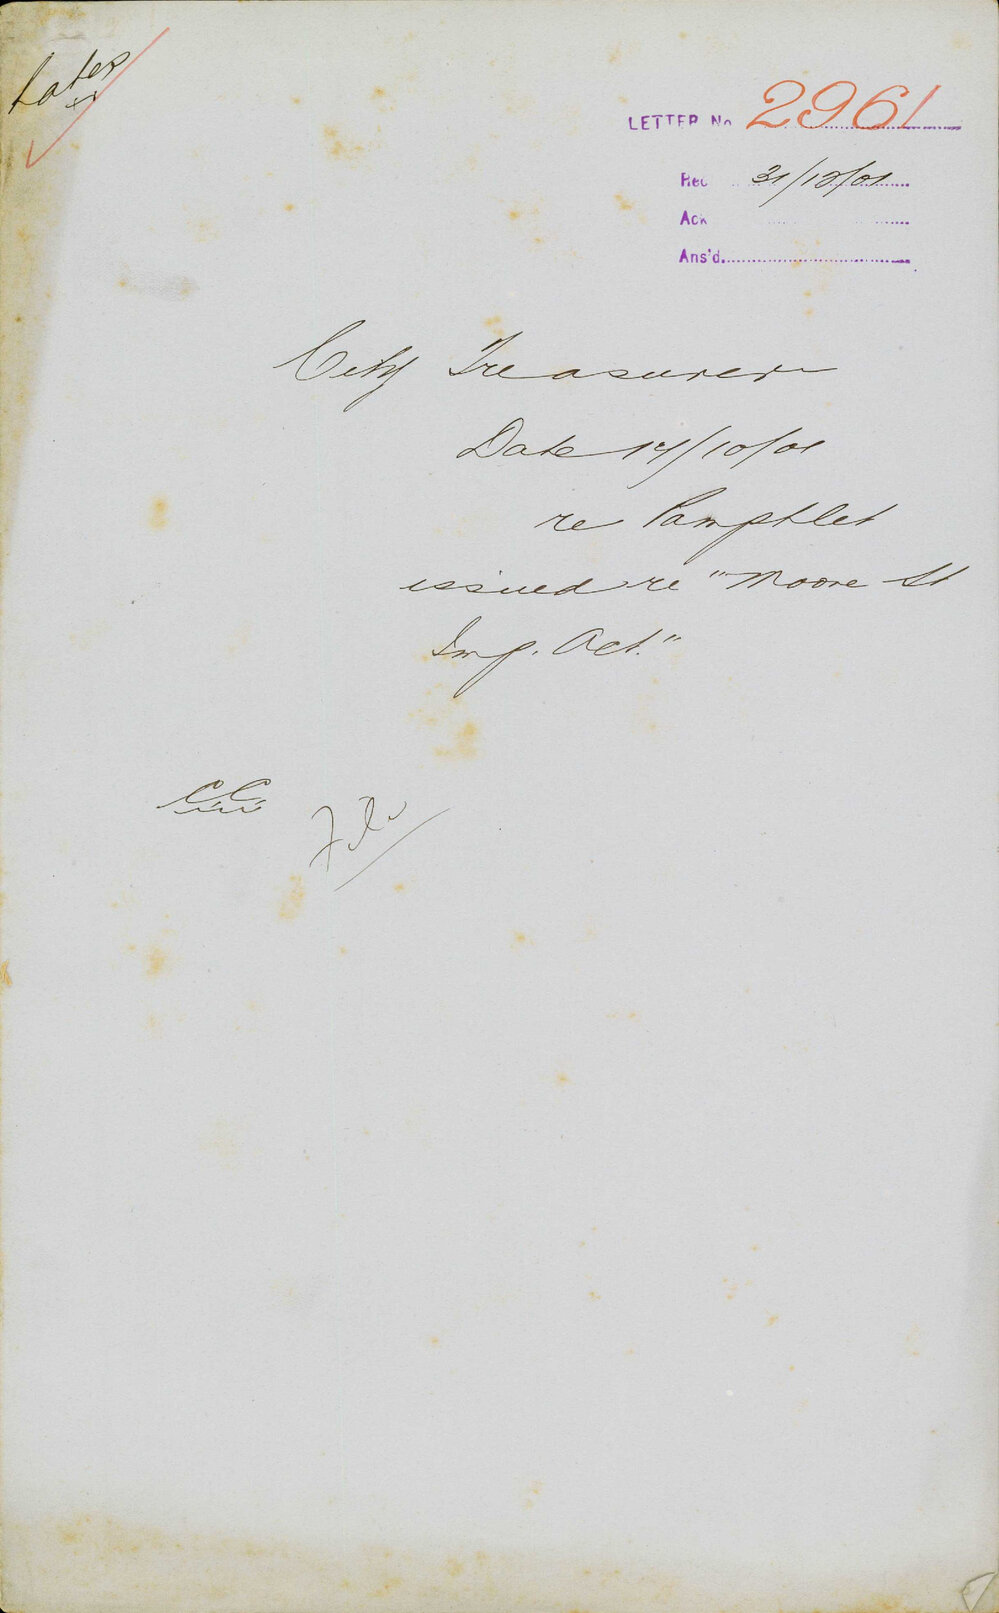 Rates
LETTER No 2961
Rec 31/12/01
Ack
Ans'd.
City Treasurer
Date 17/10/01
re Pamphlet
issued re "Moore St
Imp. Act."
File